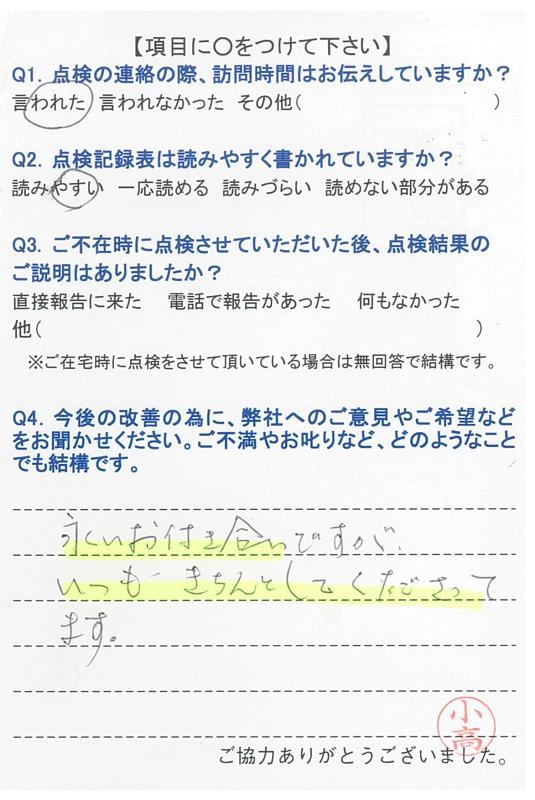 【項目に〇をつけて下さい】
Q1. 点検の連絡の際、訪問時間はお伝えしていますか？
言われた 言われなかった その他( )
Q2. 点検記録表は読みやすく書かれていますか？
読みやすい 一応読める 読みづらい 読めない部分がある
Q3. ご不在時に点検させていただいた後、点検結果の
ご説明はありましたか？
直接報告に来た 電話で報告があった 何もなかった
他( )
※ご在宅時に点検をさせて頂いている場合は無回答で結構です。
Q4. 今後の改善の為に、弊社へのご意見やご希望など
をお聞かせください。ご不満やお叱りなど、どのようなこと
でも結構です。
永いお付き合いですが、
いつも きちんとしてくださって
ます。
小高
ご協力ありがとうございました。